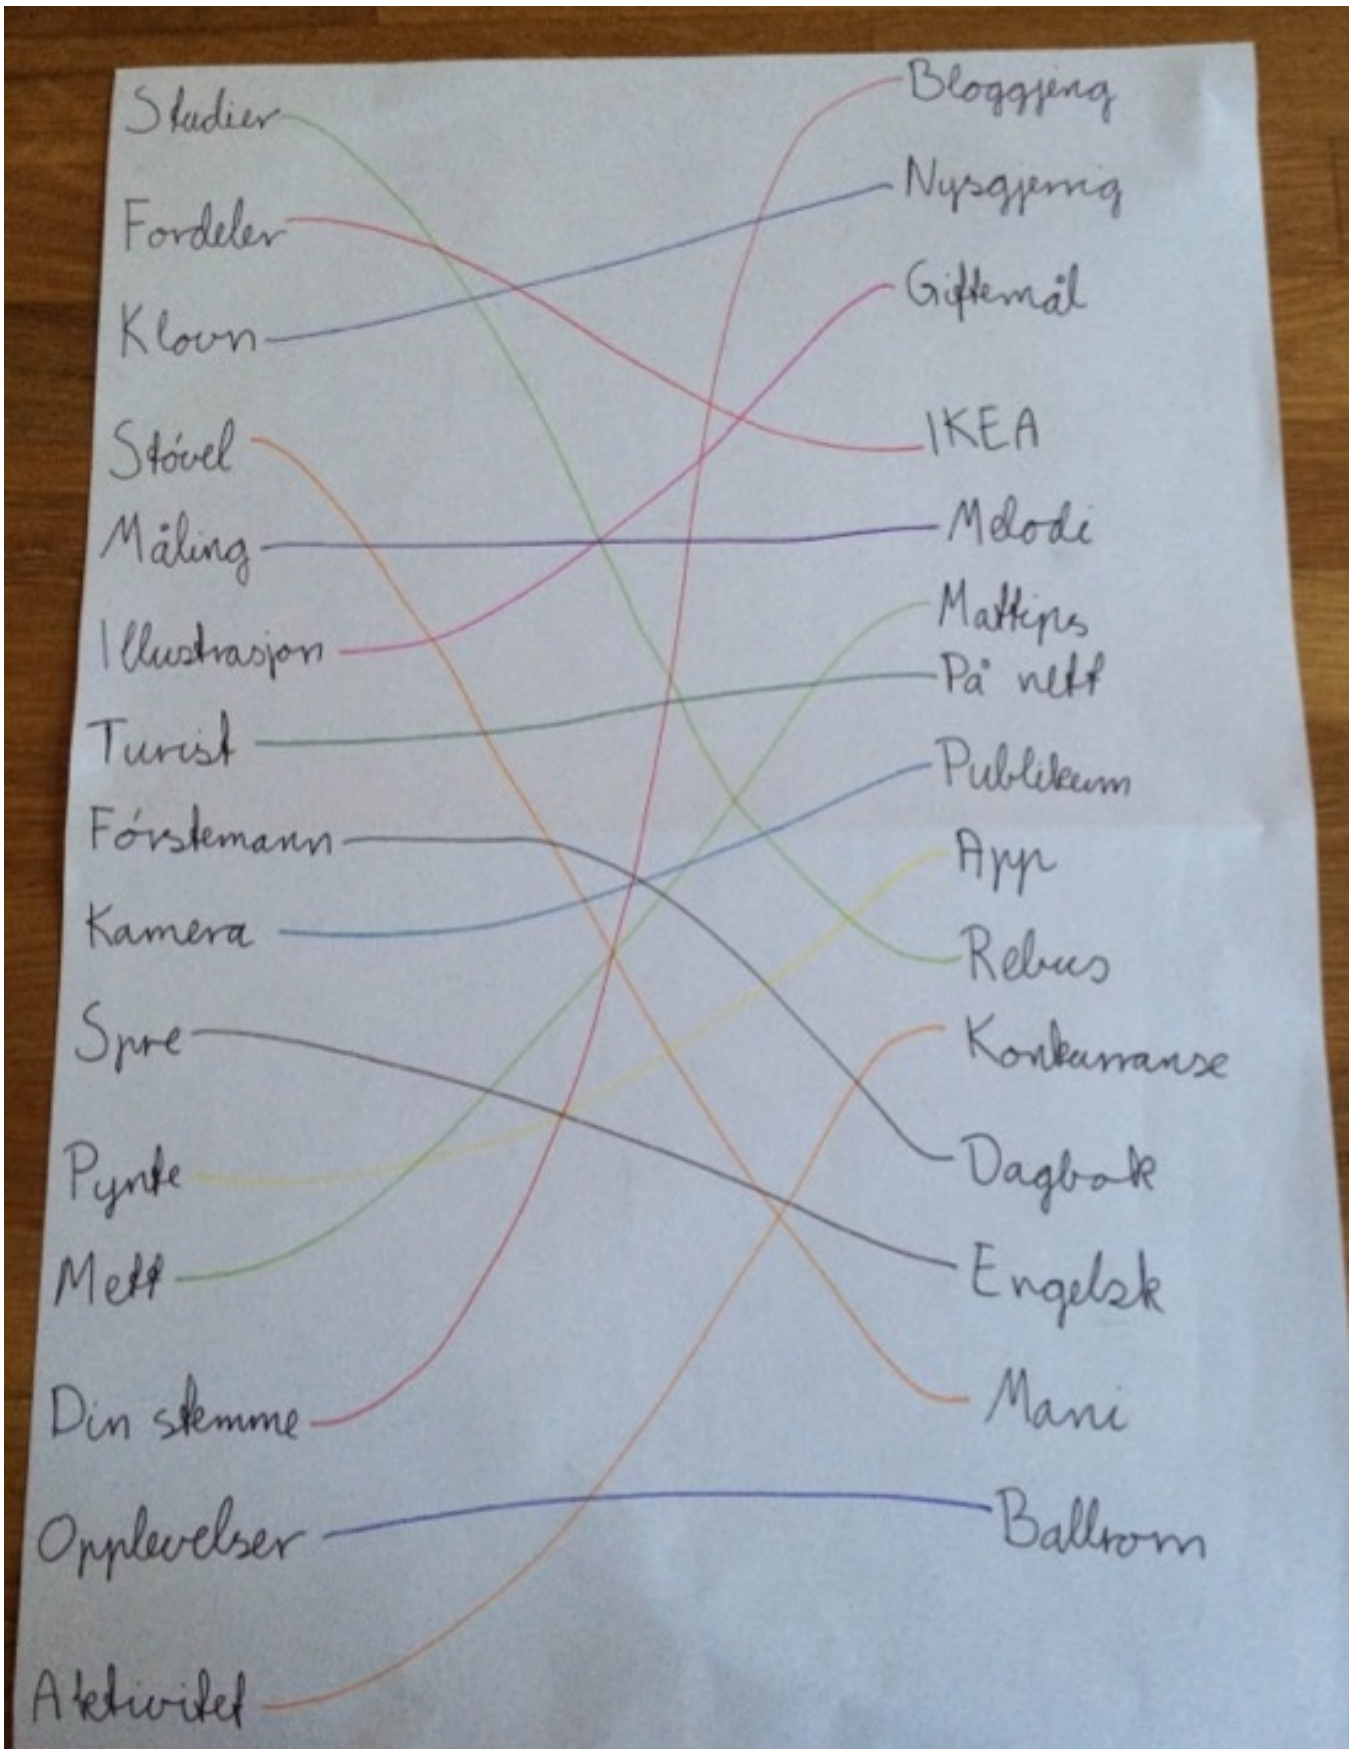 Studier
Fordeler
Klovn
Stóvel
Måling
Illustrasjon
Turist
Fórstemann
Kamera
Spre
Pynte
Mett
Din stemme
Opplevelser
Aktivitet
Bloggjeng
Nysgjerrig
Giftemål
IKEA
Melodi
Mattips
På nett
Publikum
App
Rebus
Konkurranse
Dagbok
Engelsk
Mani
Ballrom